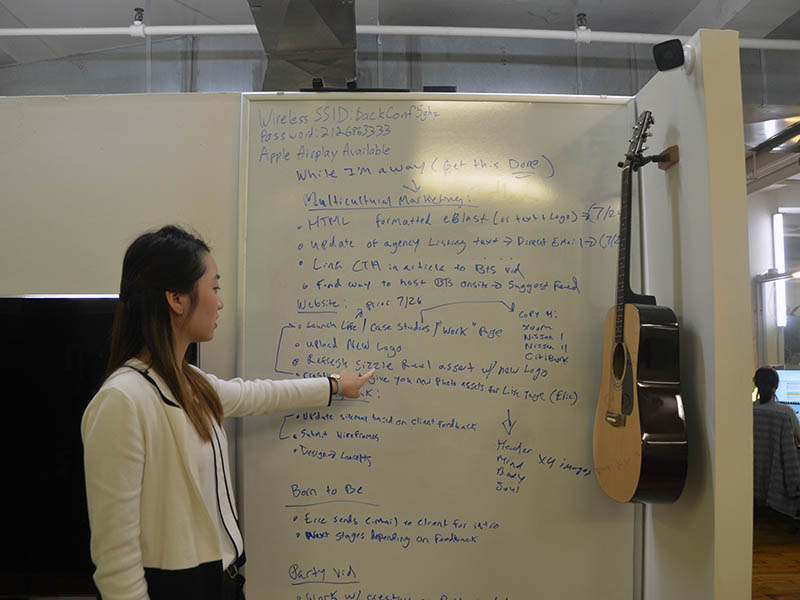 Wireless SSID: backConf5ghz
Password: 2126863333
Apple Airplay Available
While I'm away (Get this Done)
Multicultural Marketing:
HTML formatted eBlast (or text + Logo) → (7/2
Update of agency Listing text → Direct Email → (7/2
Link CTA in article to BTS vid
Find way to host BTS onsite → Suggest Feed
Website: prior 7/26
Launch Life / Case Studies / "Work" Page
Copy 4:
Xoom
Nissan I
Nissan II
CitiBank
Upload New Logo
Refresh Sizzle Reel asset w/ new Logo
give you new photo assets for Life Page (Eric)
Update sitemap based on client feedback
Submit Wireframes
Design → Concepts
Header
Mind
Body
Soul
x4 images
Born to Be
Eric sends email to client for intro
Next stages depending on feedback
Party vid
Work w/